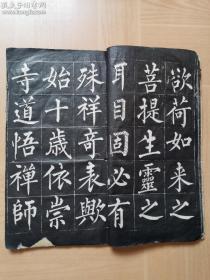 欲荷如来之
菩提生靈之
耳目固必有
殊祥奇表歟
始十歳依崇
寺道悟禪師